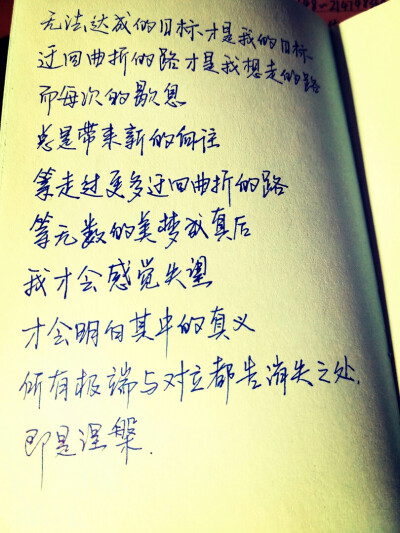 无法达成的目标才是我的目标
迂回曲折的路才是我想走的路
而每次的歇息
总是带来新的向往
等走过更多迂回曲折的路
等无数的美梦成真后
我才会感觉失望
才会明白其中的真义
所有极端与对立都告消失之处.
即是涅槃.